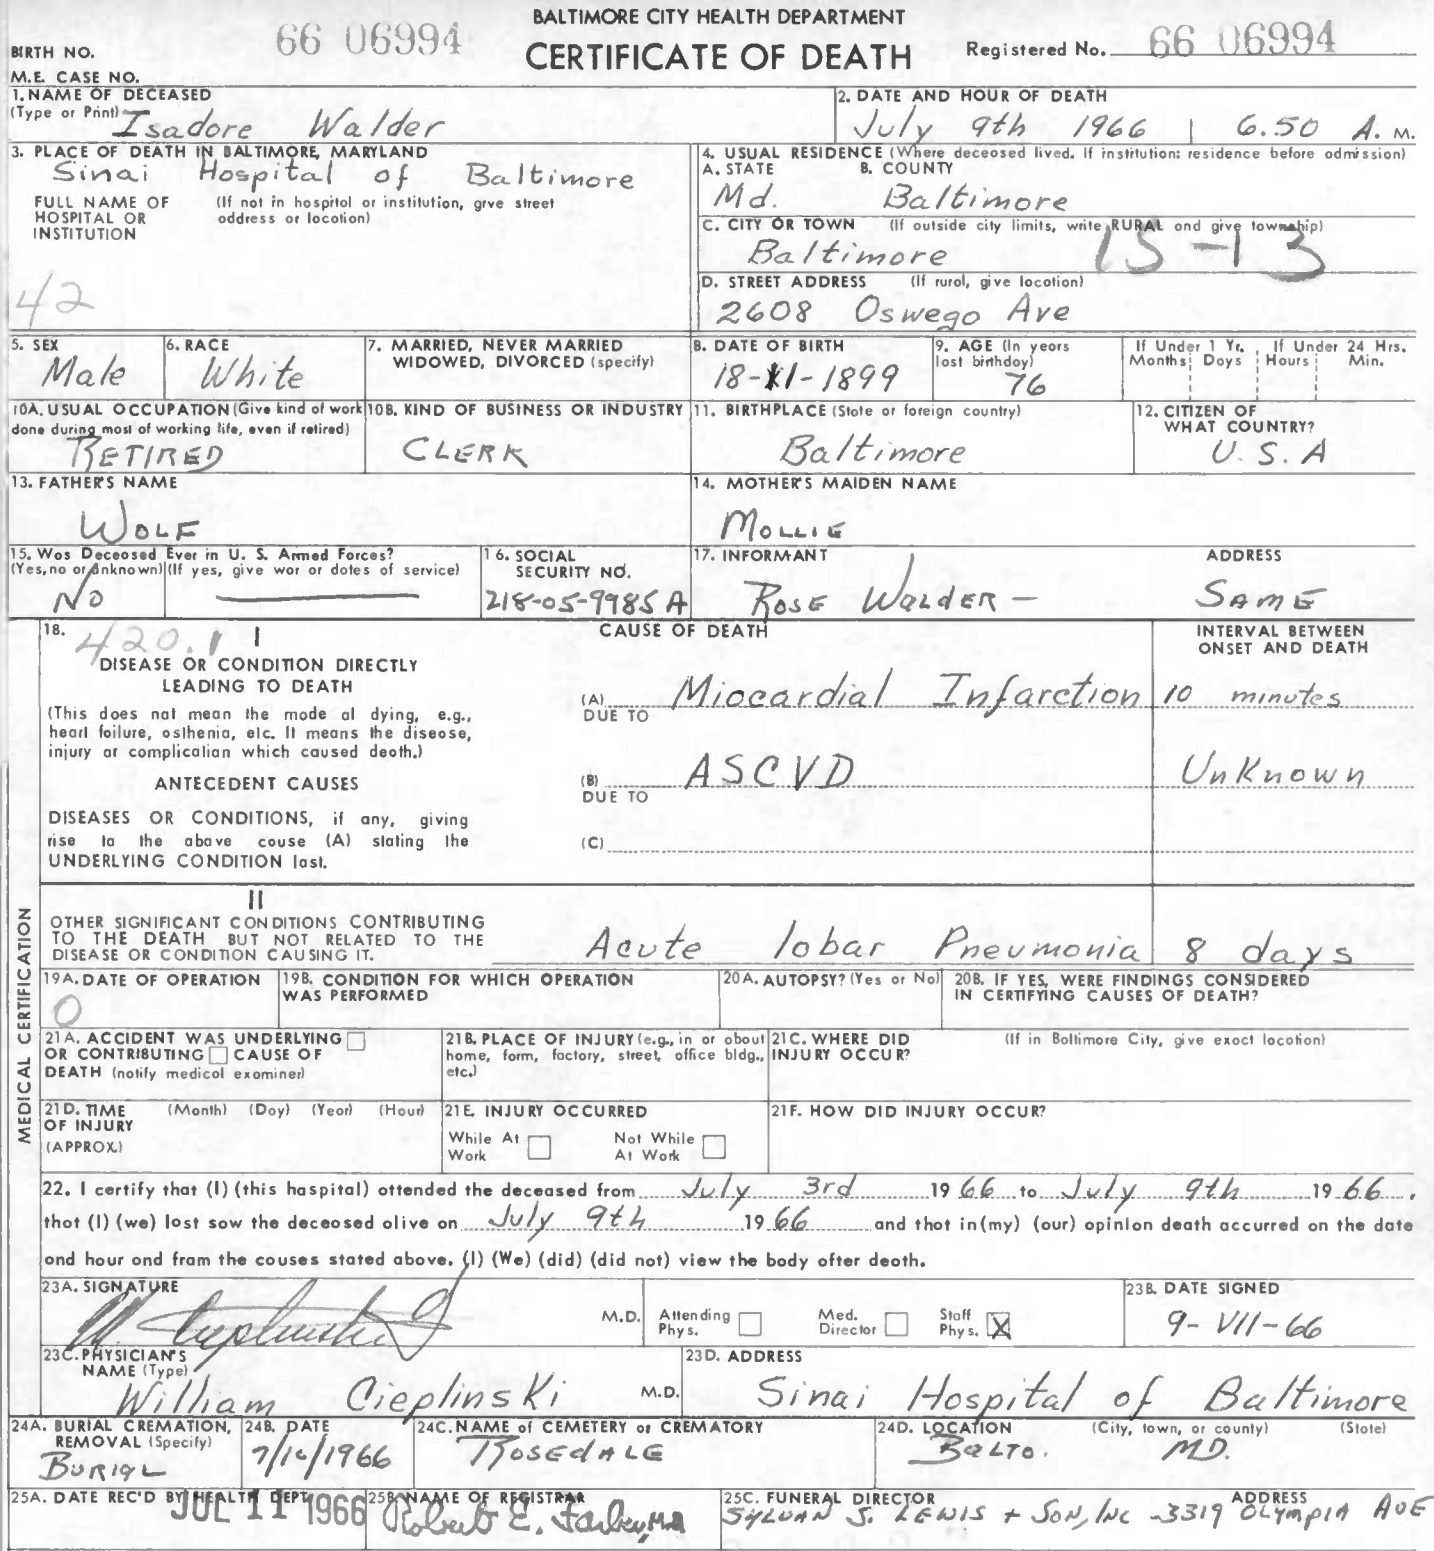 BALTIMORE CITY HEALTH DEPARTMENT
66 06994
CERTIFICATE OF DEATH
Registered No. 66 06994
BIRTH NO.
M.E. CASE NO.
1. NAME OF DECEASED
(Type or Print) Isadore Walder
2. DATE AND HOUR OF DEATH
July 9th 1966 | 6.50 A. M.
3. PLACE OF DEATH IN BALTIMORE, MARYLAND
Sinai Hospital of Baltimore
FULL NAME OF HOSPITAL OR INSTITUTION
(If not in hospital or institution, give street address or location)
42
4. USUAL RESIDENCE (Where deceased lived. If institution: residence before admission)
A. STATE B. COUNTY
Md. Baltimore
C. CITY OR TOWN (If outside city limits, write RURAL and give township)
Baltimore 15-13
D. STREET ADDRESS (If rural, give location)
2608 Oswego Ave
5. SEX
Male
6. RACE
White
7. MARRIED, NEVER MARRIED
WIDOWED, DIVORCED (specify)
8. DATE OF BIRTH
18-XI-1899
9. AGE (In years
last birthday)
76
If Under 1 Yr.
Months Days
If Under 24 Hrs.
Hours Min.
10A. USUAL OCCUPATION (Give kind of work
done during most of working life, even if retired)
RETIRED
10B. KIND OF BUSINESS OR INDUSTRY
CLERK
11. BIRTHPLACE (State or foreign country)
Baltimore
12. CITIZEN OF
WHAT COUNTRY?
U.S.A
13. FATHER'S NAME
WOLF
14. MOTHER'S MAIDEN NAME
MOLLIE
15. Was Deceased Ever in U. S. Armed Forces?
(Yes, no or unknown) (If yes, give war or dates of service)
NO
16. SOCIAL
SECURITY NO.
218-05-9985 A
17. INFORMANT ADDRESS
ROSE WALDER - SAME
18. 420.1 I
CAUSE OF DEATH
INTERVAL BETWEEN
ONSET AND DEATH
DISEASE OR CONDITION DIRECTLY
LEADING TO DEATH
(This does not mean the mode of dying, e.g.,
heart failure, asthenia, etc. It means the disease,
injury or complication which caused death.)
(A) Miocardial Infarction 10 minutes
DUE TO
ANTECEDENT CAUSES
(B) ASCVD Unknown
DUE TO
DISEASES OR CONDITIONS, if any, giving
rise to the above cause (A) stating the
UNDERLYING CONDITION last.
(C)
II
OTHER SIGNIFICANT CONDITIONS CONTRIBUTING
TO THE DEATH BUT NOT RELATED TO THE
DISEASE OR CONDITION CAUSING IT.
Acute lobar Pneumonia 8 days
MEDICAL CERTIFICATION
19A. DATE OF OPERATION
0
19B. CONDITION FOR WHICH OPERATION
WAS PERFORMED
20A. AUTOPSY? (Yes or No)
20B. IF YES, WERE FINDINGS CONSIDERED
IN CERTIFYING CAUSES OF DEATH?
21A. ACCIDENT WAS UNDERLYING
OR CONTRIBUTING CAUSE OF
DEATH (notify medical examiner)
21B. PLACE OF INJURY (e.g., in or about
home, farm, factory, street, office bldg.,
etc.)
21C. WHERE DID
INJURY OCCUR?
(If in Baltimore City, give exact location)
21D. TIME (Month) (Day) (Year) (Hour)
OF INJURY
(APPROX.)
21E. INJURY OCCURRED
While At Work Not While At Work
21F. HOW DID INJURY OCCUR?
22. I certify that (I) (this hospital) attended the deceased from July 3rd 1966 to July 9th 1966,
that (I) (we) last saw the deceased alive on July 9th 1966 and that in (my) (our) opinion death occurred on the date
and hour and from the causes stated above. (I) (We) (did) (did not) view the body after death.
23A. SIGNATURE
M.D.
Attending Phys. Med. Director Staff Phys. X
23B. DATE SIGNED
9-VII-66
23C. PHYSICIAN'S
NAME (Type)
William Cieplinski M.D.
23D. ADDRESS
Sinai Hospital of Baltimore
24A. BURIAL CREMATION,
REMOVAL (Specify)
BURIAL
24B. DATE
7/10/1966
24C. NAME of CEMETERY or CREMATORY
ROSEDALE
24D. LOCATION (City, town, or county) (State)
BALTO. MD.
25A. DATE REC'D BY HEALTH DEPT.
JUL 11 1966
25B. NAME OF REGISTRAR
Robert E. Farber, M.D.
25C. FUNERAL DIRECTOR ADDRESS
SYLVAN S. LEWIS + SON, INC - 3319 OLYMPIA AVE